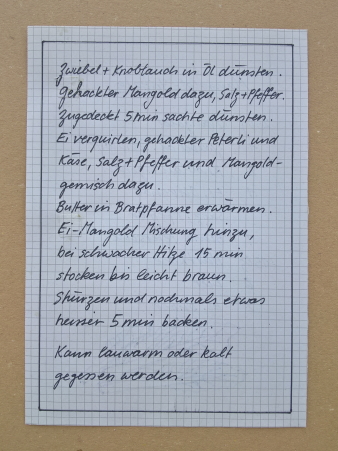 Zwiebel + Knoblauch in Öl dünsten.
gehackter Mangold dazu, Salz + Pfeffer.
Zugedeckt 5 min sachte dünsten.
Ei verquirlen, gehackter Peterli und
Käse, Salz + Pfeffer und Mangold-
gemisch dazu.
Butter in Bratpfanne erwärmen.
Ei-Mangold Mischung hinzu,
bei schwacher Hitze 15 min
stocken bis leicht braun.
Stürzen und nochmals etwas
heisser 5 min backen.
Kann lauwarm oder kalt
gegessen werden.